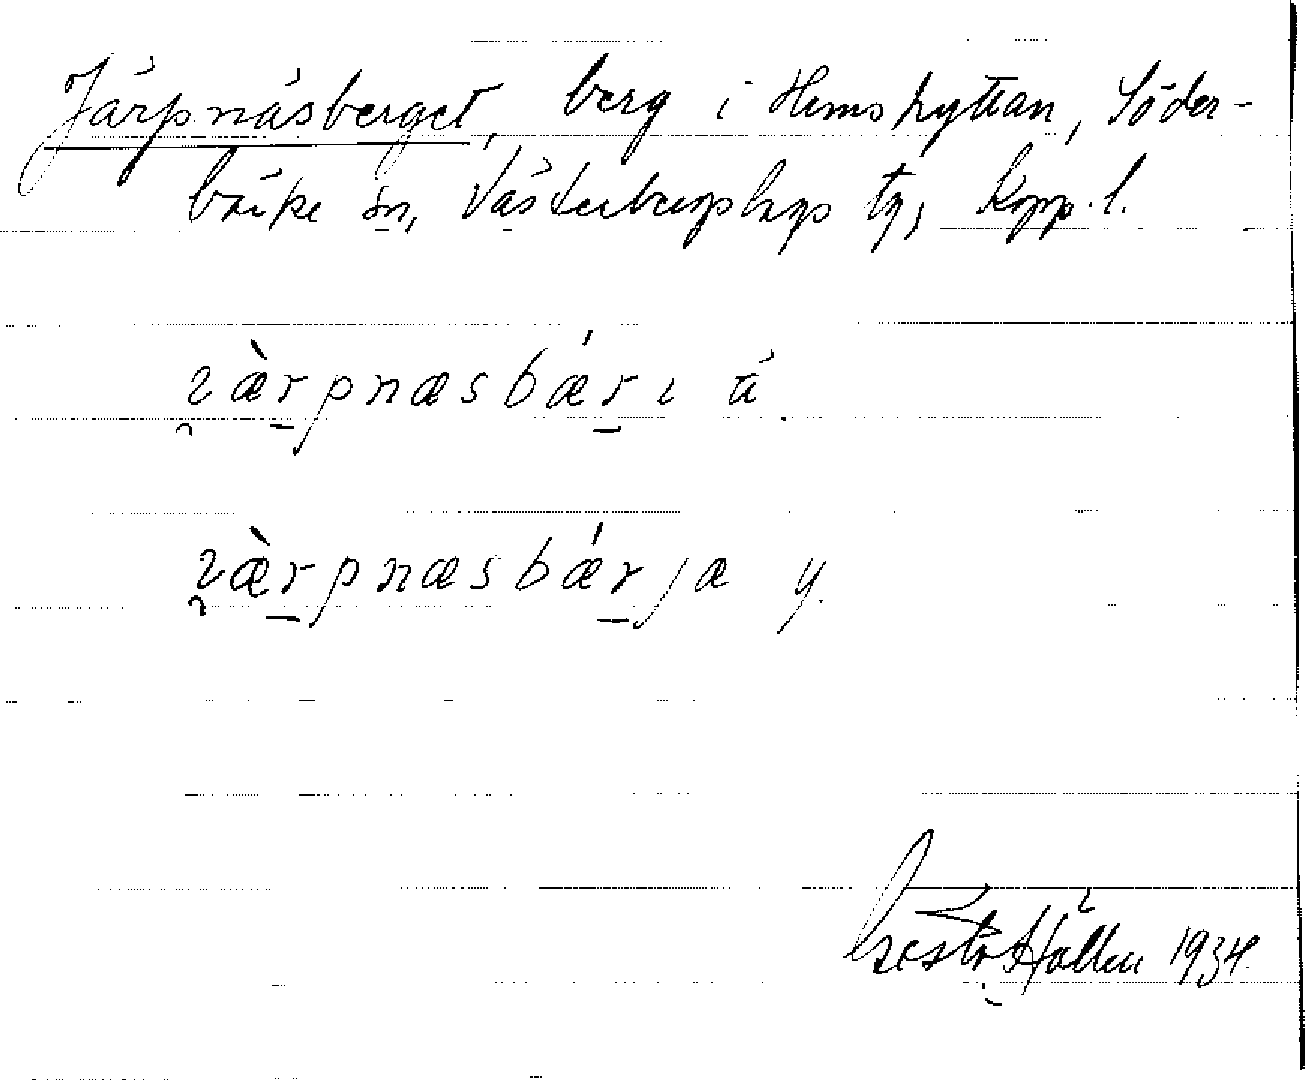 Järpnäsberget, berg i Hemshyttan, Söder-
bärke sn, Västerbergslags tg, Kopp. l.
i̯æ̀rpnæsbǽri ä.
i̯æ̀rpnæsbǽrja y.
Hällen 1934.